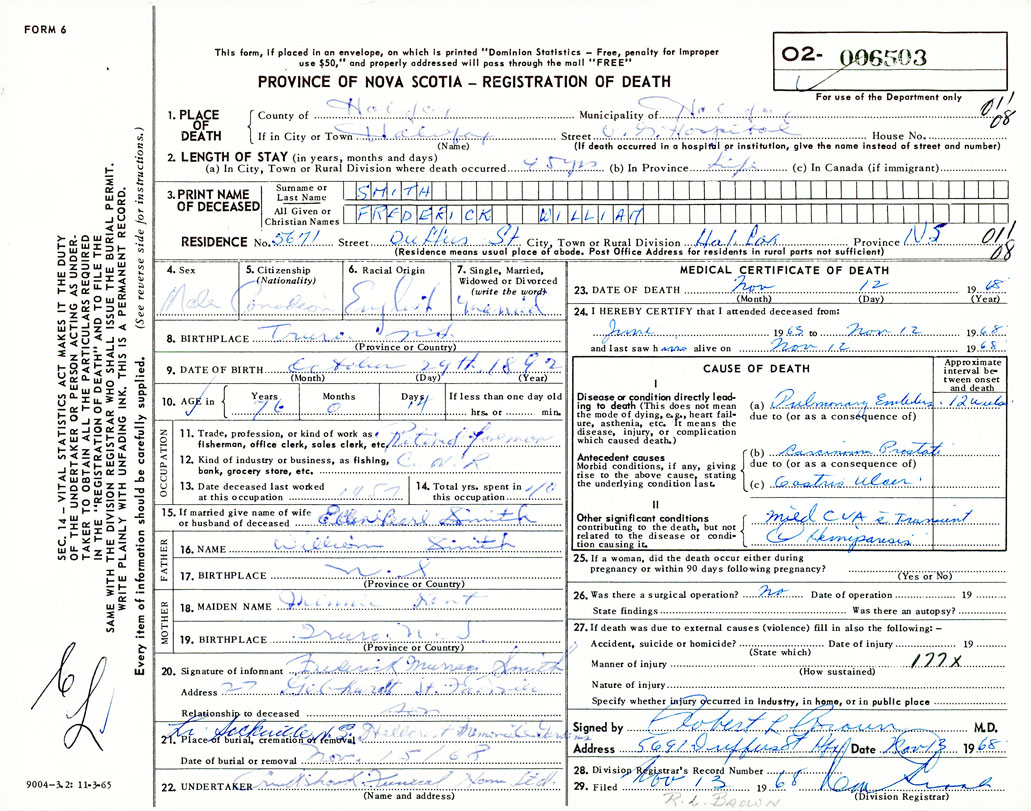 FORM 6
This form, if placed in an envelope, on which is printed "Dominion Statistics – Free, penalty for improper
use $50," and properly addressed will pass through the mail "FREE"
PROVINCE OF NOVA SCOTIA – REGISTRATION OF DEATH
02- 006503
For use of the Department only
011
08
1. PLACE OF DEATH
County of Halifax Municipality of Halifax
If in City or Town Halifax Street V. G. Hospital House No.
(Name) (If death occurred in a hospital or institution, give the name instead of street and number)
2. LENGTH OF STAY (in years, months and days)
(a) In City, Town or Rural Division where death occurred 45 yrs (b) In Province Life (c) In Canada (if immigrant)
3. PRINT NAME OF DECEASED
Surname or Last Name SMITH
All Given or Christian Names FREDERICK WILLIAM
RESIDENCE No. 5671 Street Duffus St. City, Town or Rural Division Halifax Province NS
011
08
(Residence means usual place of abode. Post Office Address for residents in rural parts not sufficient)
4. Sex
Male
5. Citizenship (Nationality)
Canadian
6. Racial Origin
English
7. Single, Married, Widowed or Divorced (write the word)
Married
8. BIRTHPLACE Truro N.S.
(Province or Country)
9. DATE OF BIRTH October 29th 1892
(Month) (Day) (Year)
10. AGE in Years 76 Months 0 Days 14 If less than one day old
hrs. or min.
OCCUPATION
11. Trade, profession, or kind of work as fisherman, office clerk, sales clerk, etc. Retired foreman
12. Kind of industry or business, as fishing, bank, grocery store, etc. C.N.R
13. Date deceased last worked at this occupation 1957
14. Total yrs. spent in this occupation 40
15. If married give name of wife or husband of deceased Ellen Pearl Smith
FATHER
16. NAME William Smith
17. BIRTHPLACE N.S
(Province or Country)
MOTHER
18. MAIDEN NAME Minnie Kent
19. BIRTHPLACE Truro N.S
(Province or Country)
20. Signature of informant Frederick Murray Smith
Address 27 St. Fairview
Relationship to deceased Son
Lr. Sackville N.S Memorial Gardens
21. Place of burial, cremation or removal
Date of burial or removal Nov. 5/68
22. UNDERTAKER Funeral Home Ltd.
(Name and address)
MEDICAL CERTIFICATE OF DEATH
23. DATE OF DEATH Nov 12 1968
(Month) (Day) (Year)
24. I HEREBY CERTIFY that I attended deceased from:
June 1965 to Nov 12 1968
and last saw him alive on Nov 12 1968
CAUSE OF DEATH
Approximate interval between onset and death
I
Disease or condition directly leading to death (This does not mean the mode of dying, e.g., heart failure, asthenia, etc. It means the disease, injury, or complication which caused death.)
(a) Pulmonary Embolus 12 weeks
due to (or as a consequence of)
Antecedent causes
Morbid conditions, if any, giving rise to the above cause, stating the underlying condition last.
(b) Carcinoma Prostate
due to (or as a consequence of)
(c) Gastric Ulcer
II
Other significant conditions contributing to the death, but not related to the disease or condition causing it.
Mild CVA c̄ Transient
Hemiparesis
25. If a woman, did the death occur either during pregnancy or within 90 days following pregnancy?
(Yes or No)
26. Was there a surgical operation? No Date of operation 19
State findings Was there an autopsy?
27. If death was due to external causes (violence) fill in also the following: –
Accident, suicide or homicide? Date of injury 19
(State which)
Manner of injury 177X
(How sustained)
Nature of injury
Specify whether injury occurred in industry, in home, or in public place
Signed by Robert L Brown M.D.
Address 5691 Duffus St Hfx Date Nov 13 1968
28. Division Registrar's Record Number
29. Filed Nov 13 1968
(Division Registrar)
R.L. BROWN
SEC. 14 – VITAL STATISTICS ACT MAKES IT THE DUTY
OF THE UNDERTAKER OR PERSON ACTING AS UNDER-
TAKER TO OBTAIN ALL THE PARTICULARS REQUIRED
IN THE "REGISTRATION OF DEATH" AND TO FILE THE
SAME WITH THE DIVISION REGISTRAR WHO SHALL ISSUE THE BURIAL PERMIT.
WRITE PLAINLY WITH UNFADING INK. THIS IS A PERMANENT RECORD.
Every item of information should be carefully supplied. (See reverse side for instructions.)
9004-3.2: 11-3-65